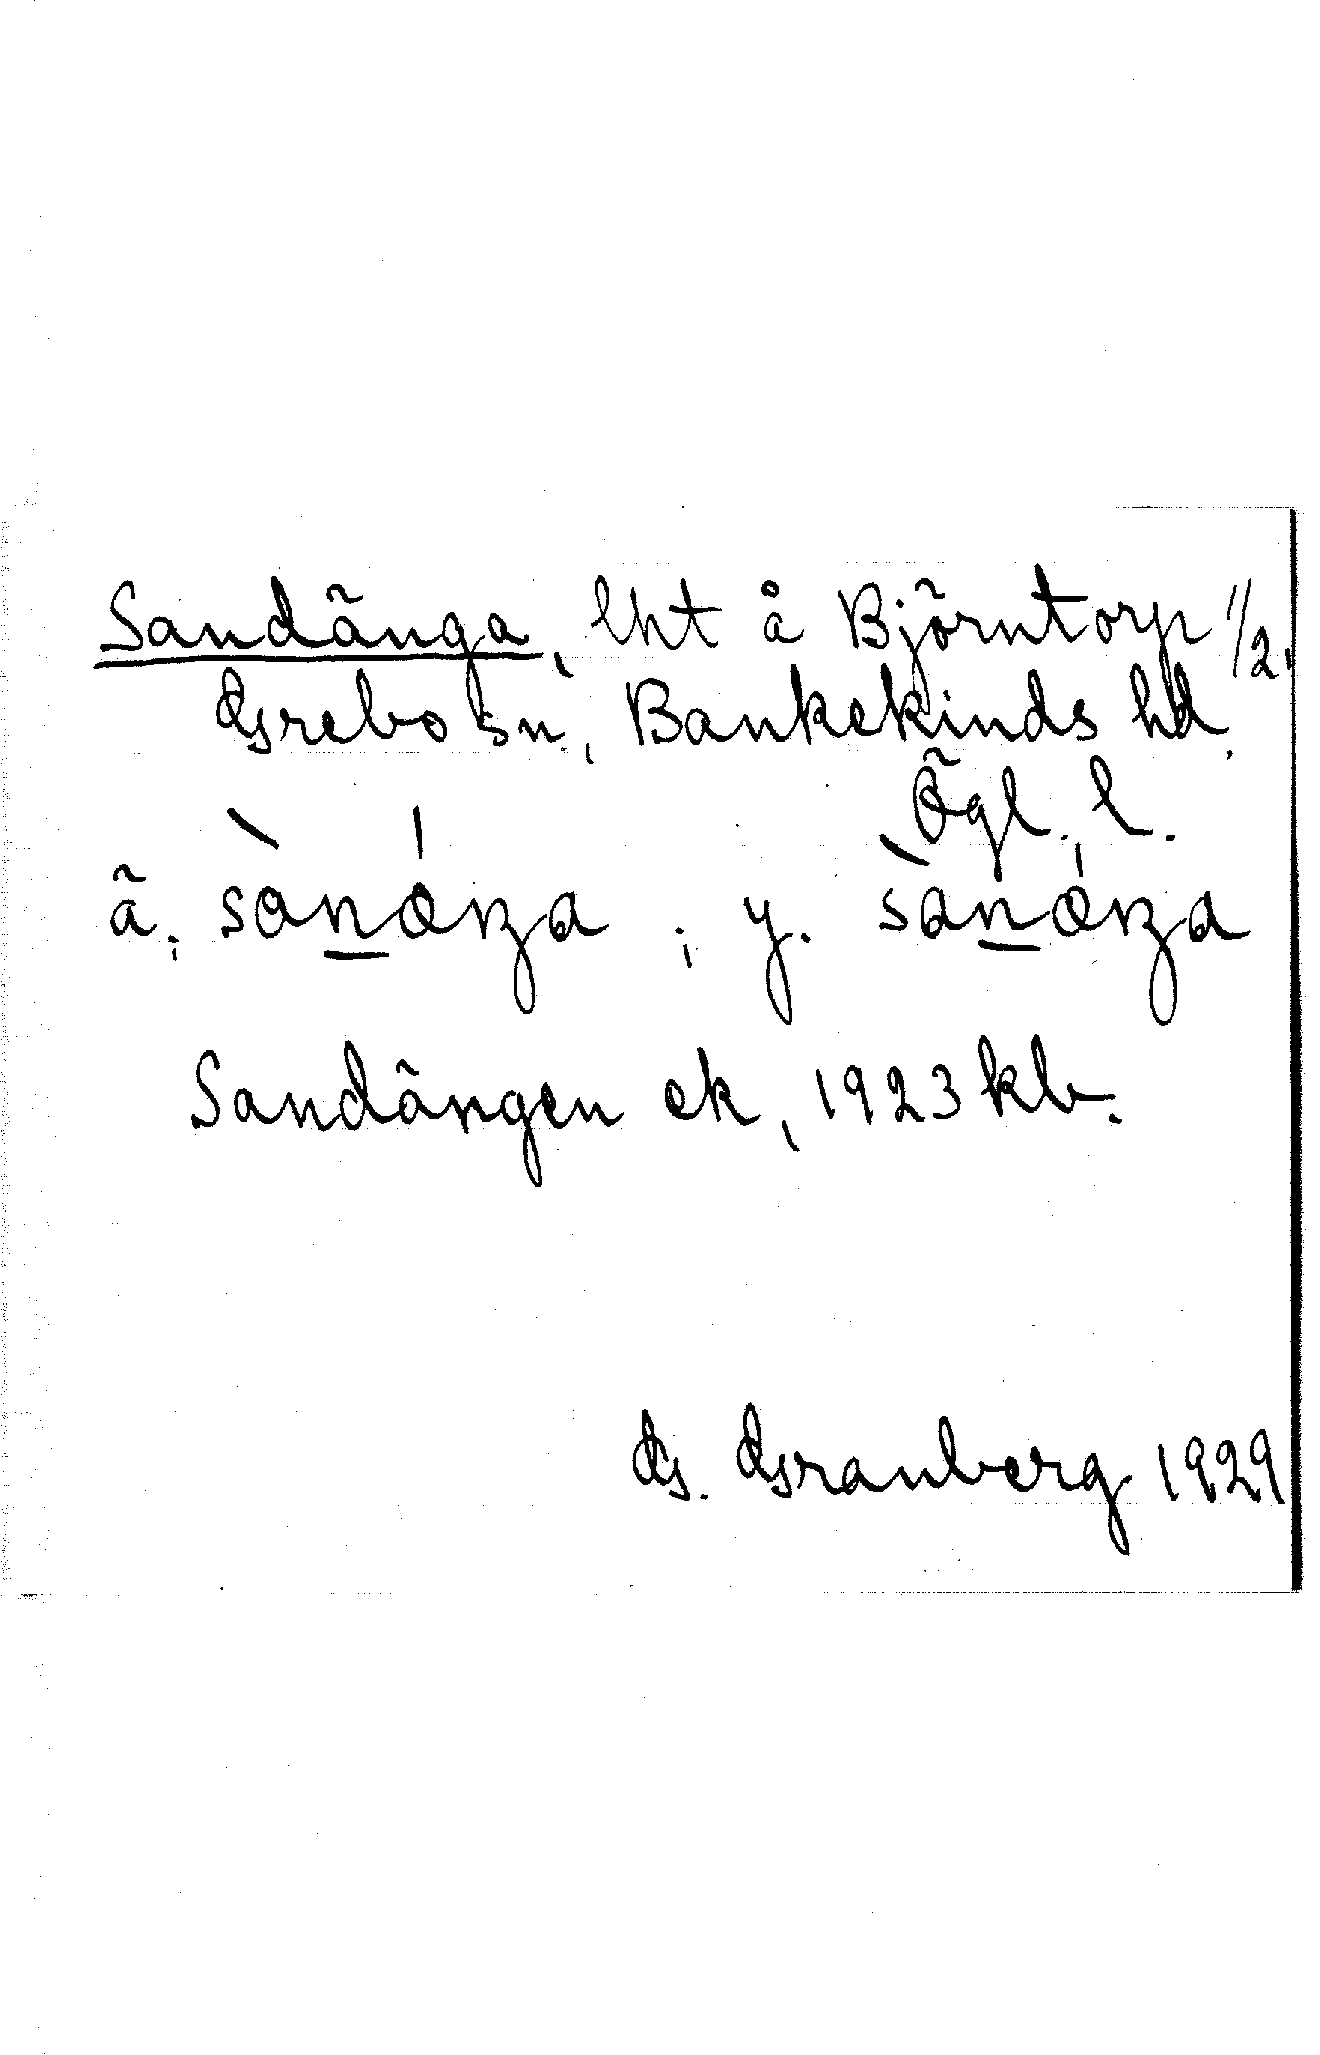 Sandänga, lht å Björntorp 1/2.
Grebo sn., Bankekinds hd.
Ögl. l.
ä. sànǽŋa ; y. sànǽŋa
Sandängen ek, 1923 kb.
G. Granberg 1929